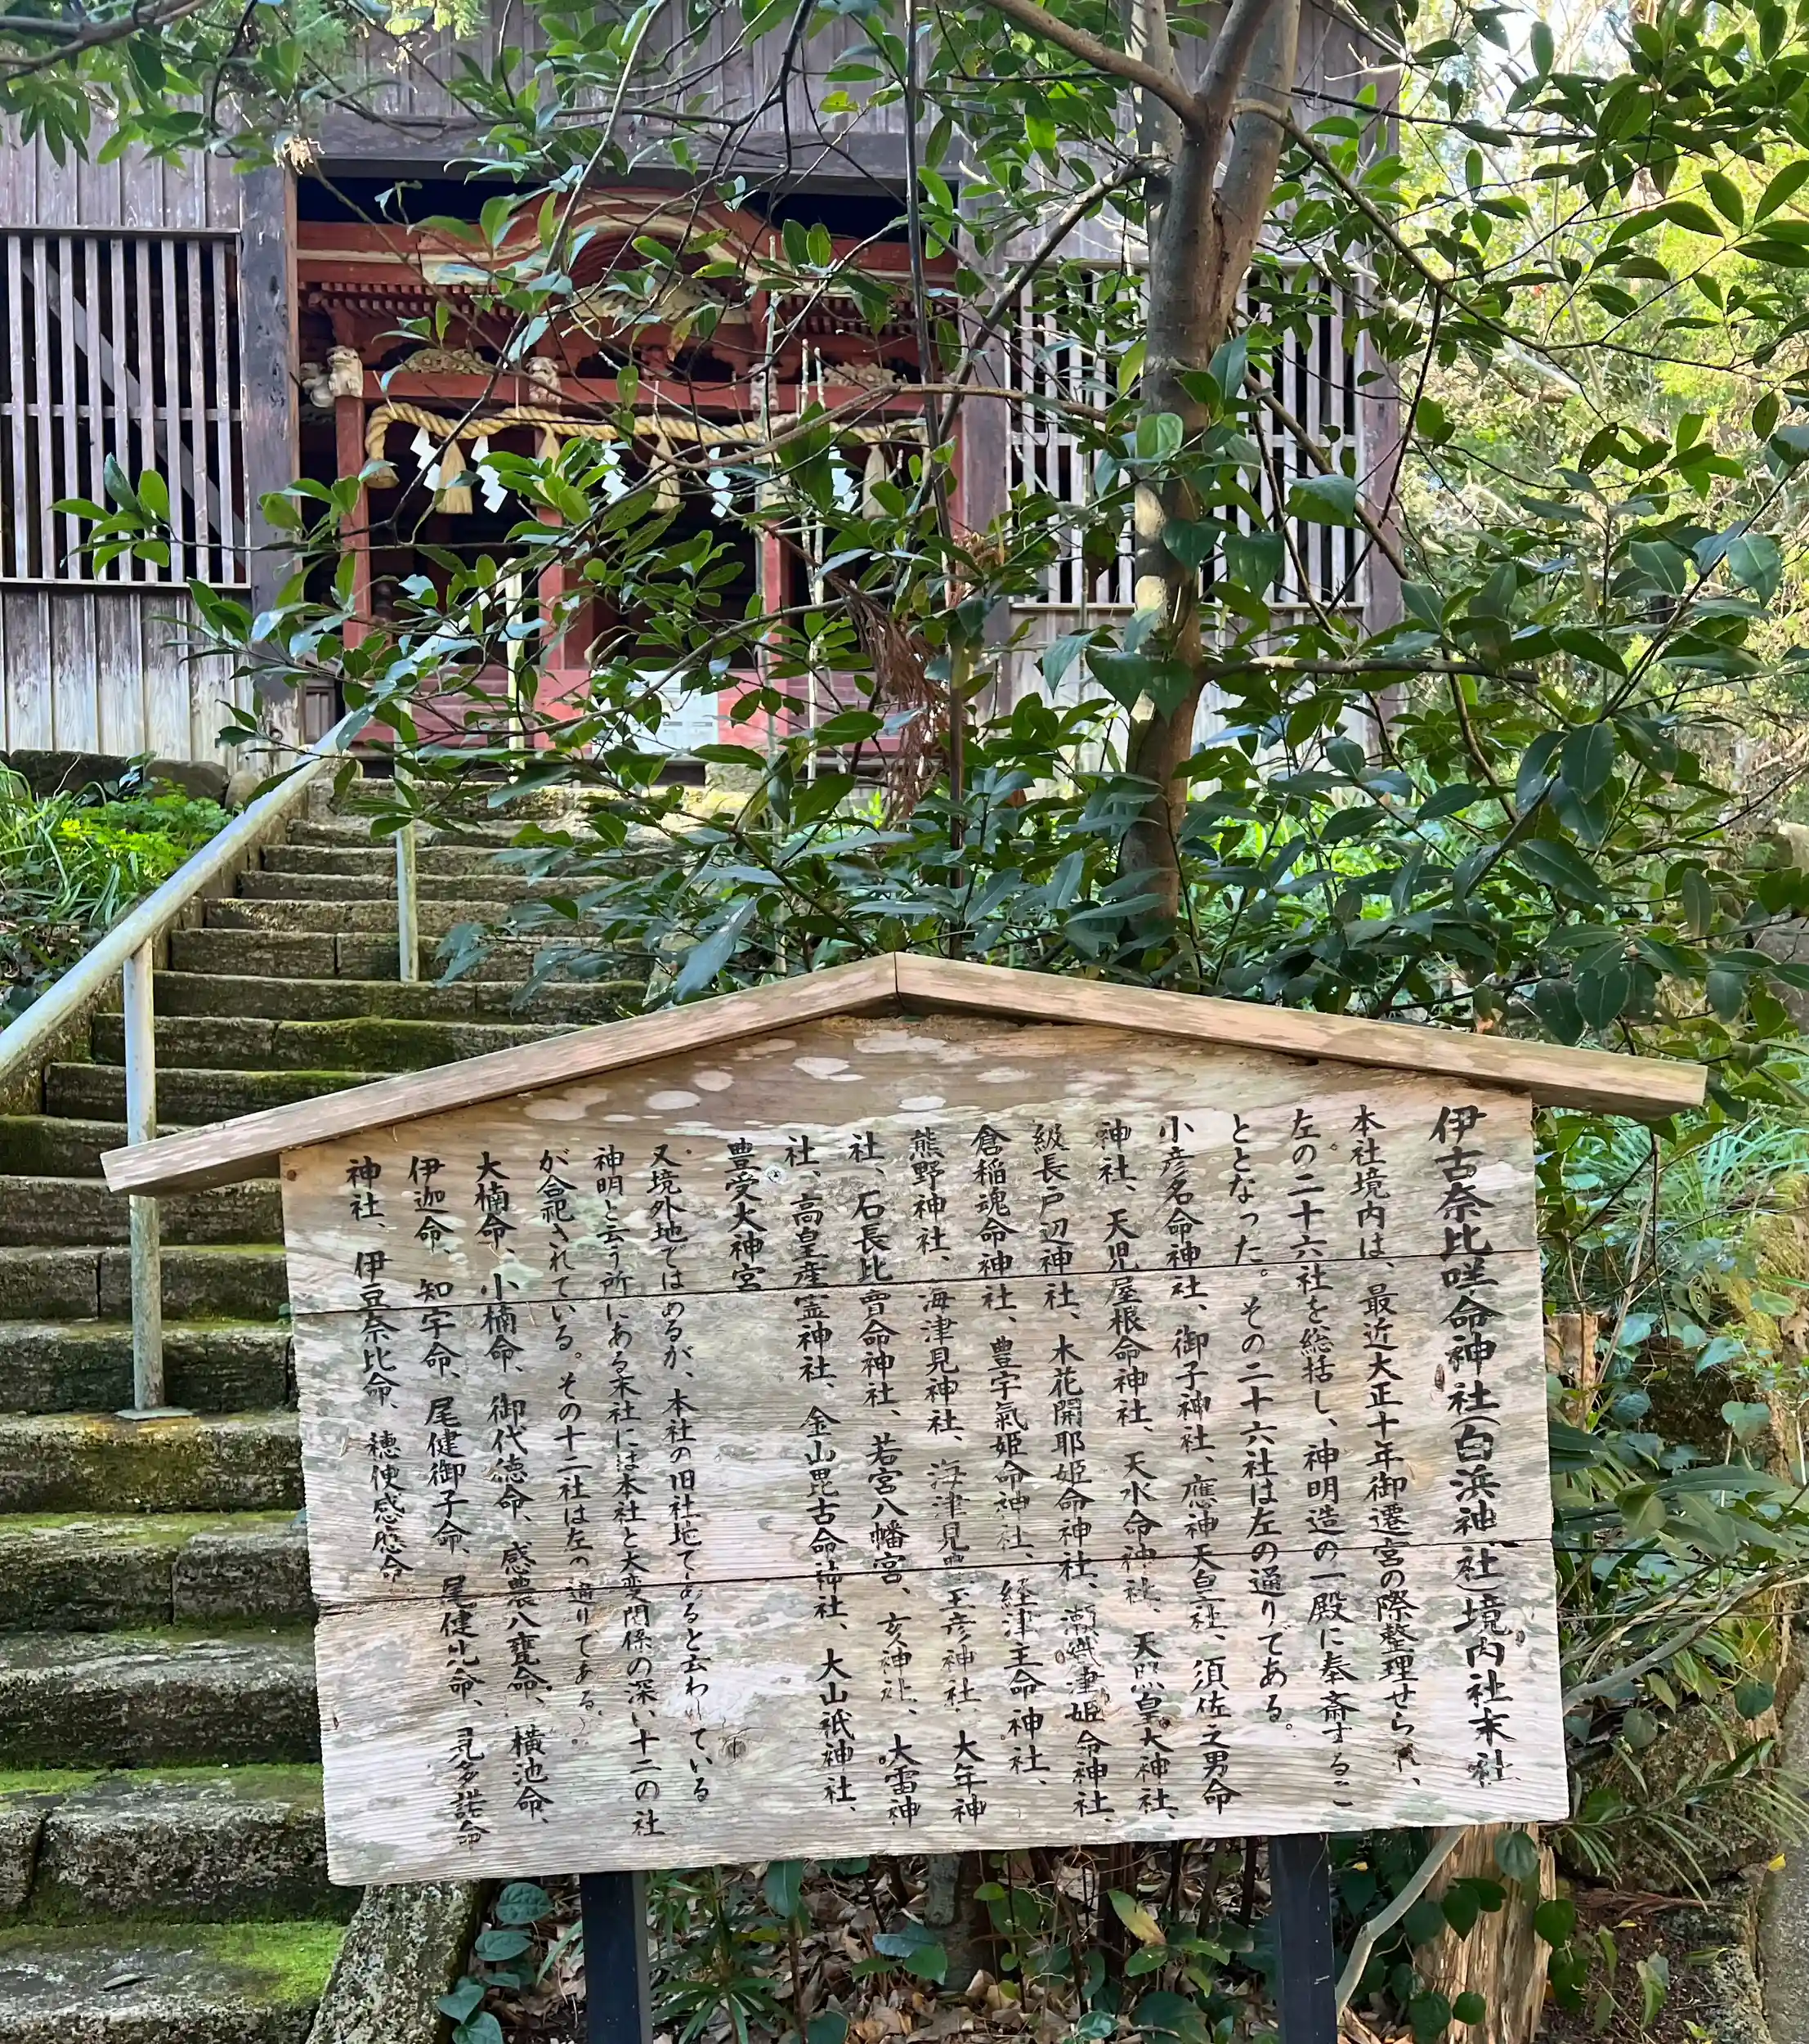 伊古奈比咩命神社(白浜神社)境内社末社
本社境内は、最近大正十年御遷宮の際整理せられ、
左の二十六社を総括し、神明造の一殿に奉斎するこ
ととなった。その二十六社は左の通りである。
小彦名命神社、御子神社、應神天皇社、須佐之男命
神社、天児屋根命神社、天水命神社、天照皇大神社、
級長戸辺神社、木花開耶姫命神社、瀬織津姫命神社、
倉稲魂命神社、豊宇氣姫命神社、経津主命神社、
熊野神社、海津見神社、海津見 玉彦神社、大年神
社、石長比賣命神社、若宮八幡宮、亥神社、大雷神
社、高皇産霊神社、金山毘古命神社、大山祇神社、
豊受大神宮
又境外地ではあるが、本社の旧社地であると云われている
神明と云う所にある末社には本社と大変関係の深い十二の社
が合祀されている。その十二社は左の通りである。
大楠命、小楠命、御代徳命、感農八甕命、横池命、
伊迦命、知宇命、尾健御子命、尾健比命、見多諾命
神社、伊豆奈比命、穂便感應命